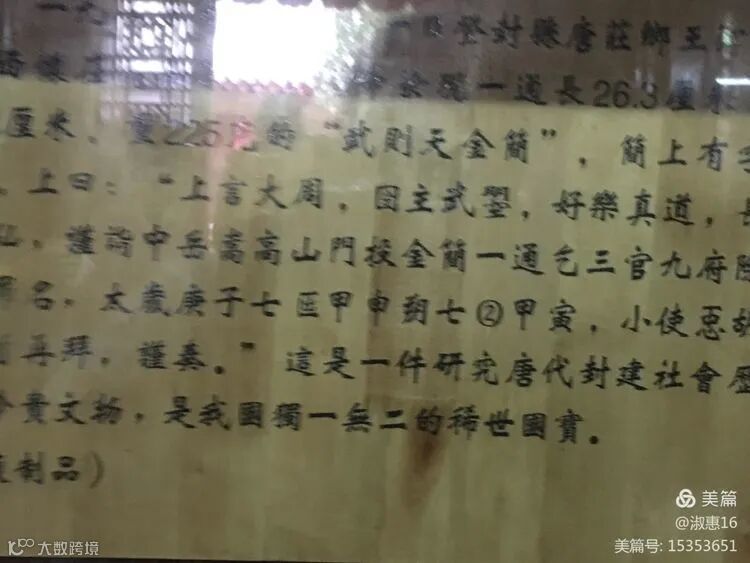 一九
登封縣唐莊鄉王
一通長26.3厘米
厘米，重225克的“武則天金簡”，簡上有字
，上曰：“上言大周，囶主武曌，好樂真道，長
仙，謹詣中岳嵩高山門投金簡一通乞三官九府除
罪名，太歲庚子七匨甲申朔七②甲寅，小使惡胡
再拜，謹奏。”這是一件研究唐代封建社會歷
貴文物，是我國獨一無二的稀世國寶。
制品）
美篇
@淑惠16
美篇号: 15353651
大数跨境